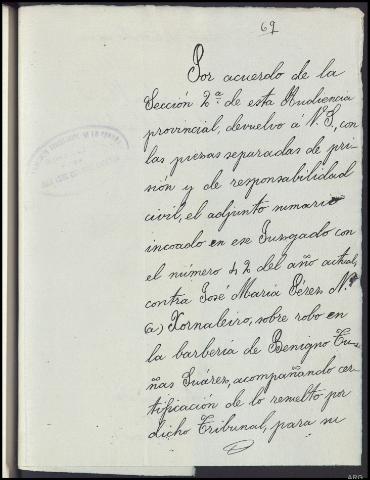 69
Por acuerdo de la
Sección 2ª de esta Audiencia
provincial, devuelvo á V. S., con
las piezas separadas de pri-
sión y de responsabilidad
civil, el adjunto sumario
incoado en ese Juzgado con
el número 42 del año actual,
contra José María Pérez N.
a) Xornaleiro, sobre robo en
la barbería de Benigno Tu-
ñas Suárez, acompañando cer-
tificación de lo resuelto por
dicho Tribunal, para su
ARG